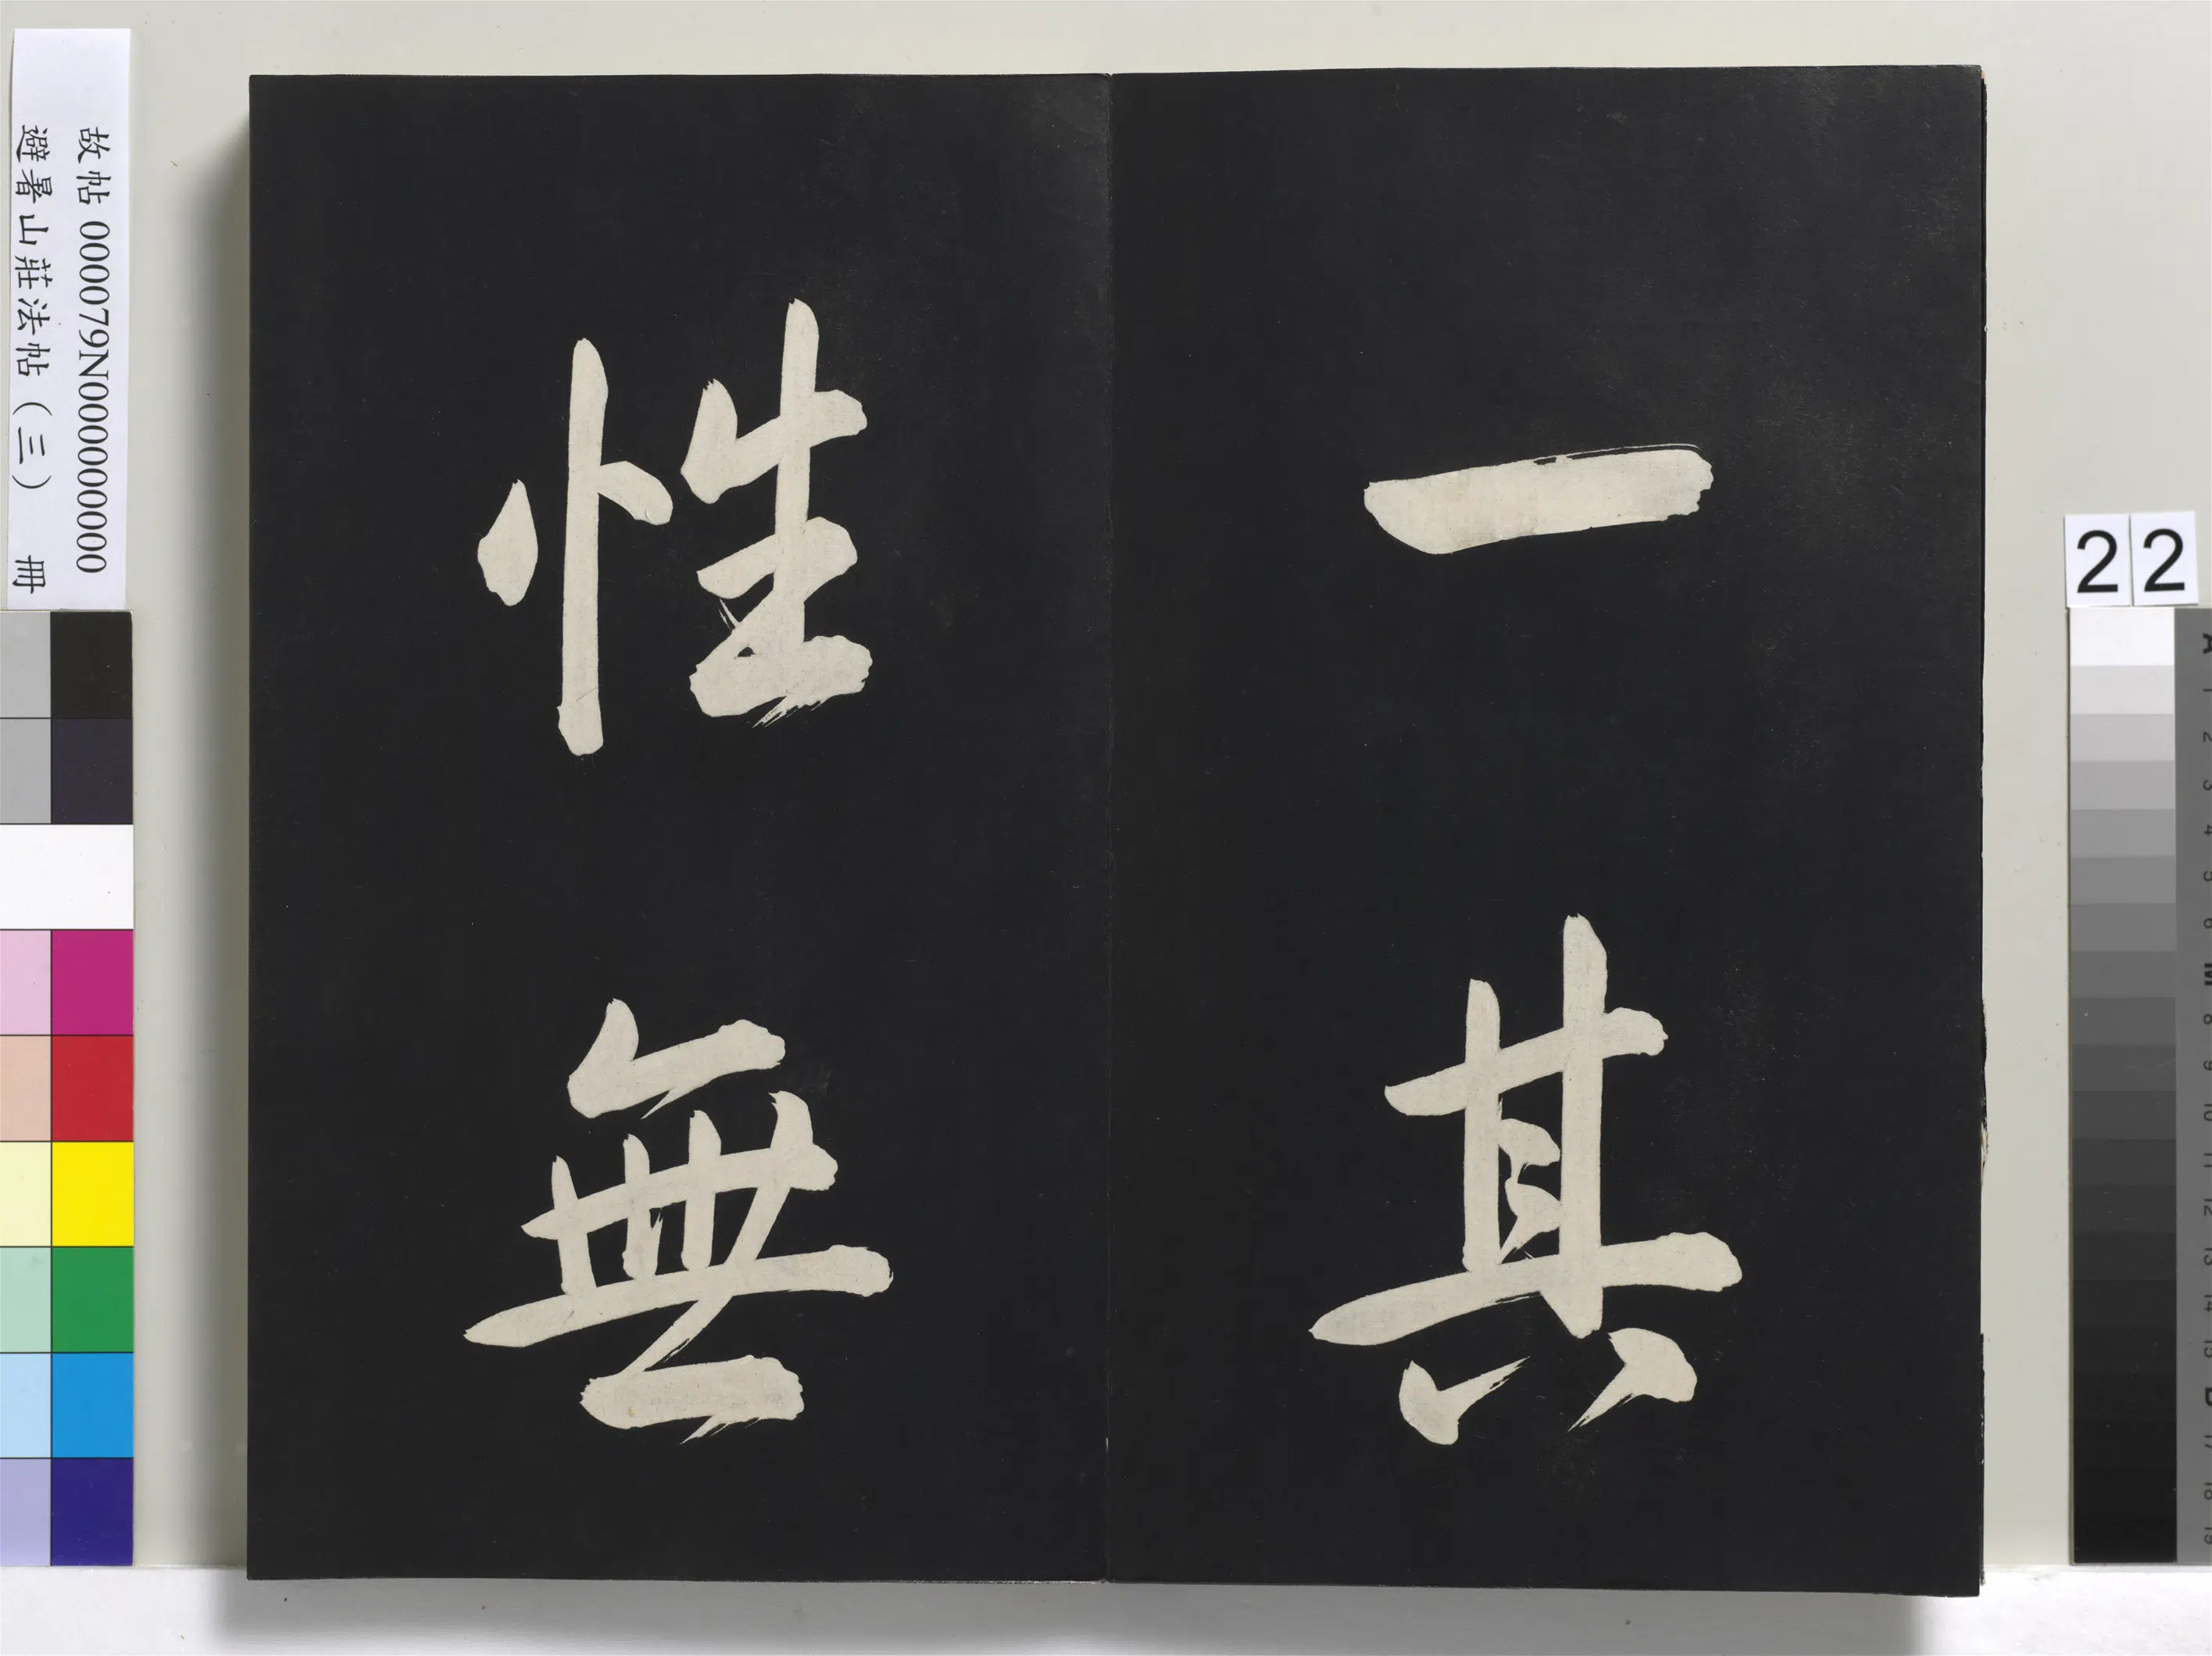 一其
性無
故帖 000079N000000000
避暑山莊法帖（三） 冊
22
A 1 2 3 4 5 6 M 8 9 10 11 12 13 14 15 B 17 18 19